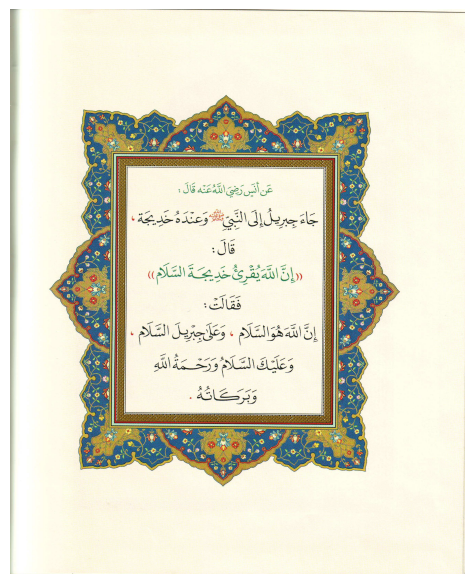 عَن أَنَسٍ رَضِيَ اللَّهُ عَنْه قَالَ :
جَاءَ جِبرِيلُ إِلَى النَّبِيِّ ﷺ وَعِنْدَهُ خَدِيجَة ،
قَالَ :
((إِنَّ اللَّهَ يُقْرِئُ خَدِيجَةَ السَّلَام))
فَقَالَتْ :
إِنَّ اللَّهَ هُوَ السَّلَام ، وَعَلَى جِبْرِيلَ السَّلَام ،
وَعَلَيْكَ السَّلَامُ وَرَحْمَةُ اللَّهِ
وَبَرَكَاتُهُ .